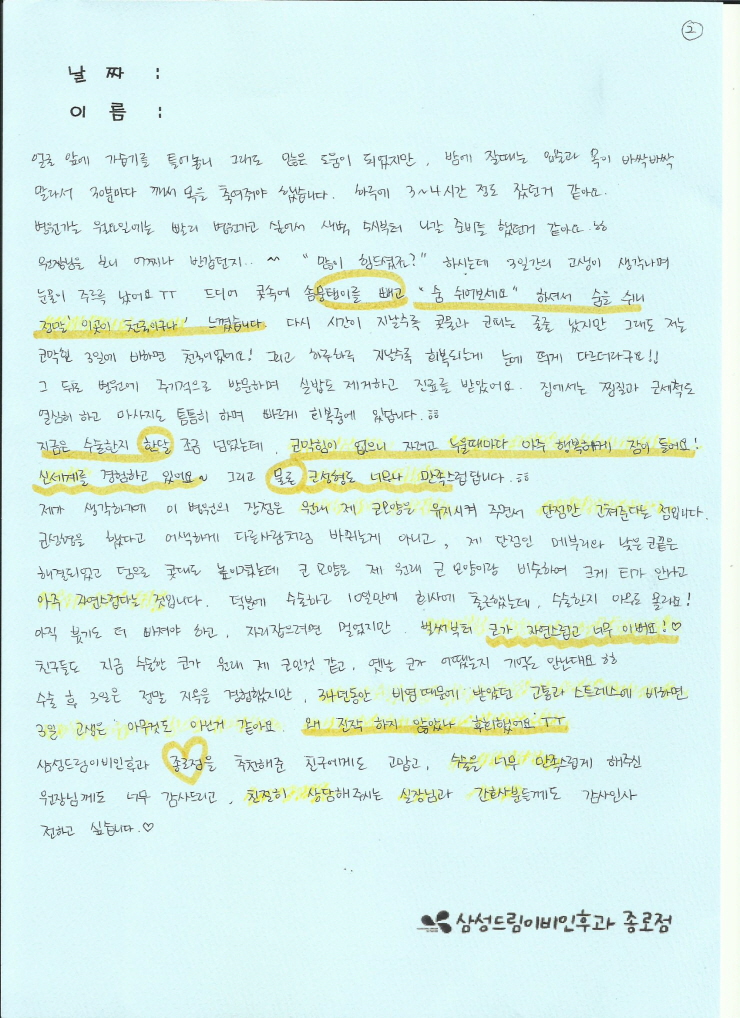 ②
날 짜 :
이 름 :
얼굴 앞에 가습기를 틀어놓니 그래도 많은 도움이 되었지만, 밤에 잘때는 입술과 목이 바싹바싹
말라서 30분마다 깨서 목을 축여줘야 했습니다. 하루에 3~4시간 정도 잤던거 같아요.
병원가는 월요일에는 빨리 병원가고 싶어서 새벽 5시부터 나갈 준비를 했던거 같아요 ㅎㅎ
원장님을 보니 어찌나 반갑던지.. ^^ "많이 힘드셨죠?" 하시는데 3일간의 고생이 생각나며
눈물이 주르륵 났어요 ㅜㅜ 드디어 콧속에 솜뭉탱이를 빼고 "숨 쉬어보세요" 하셔서 숨을 쉬니
정말 '이곳이 천국이구나' 느꼈습니다. 다시 시간이 지날수록 콧물과 코피는 줄줄 났지만 그래도 저는
코막힌 3일에 비하면 천국이었어요! 그리고 하루하루 지날수록 회복되는게 눈에 띄게 다르더라구요!!
그 뒤로 병원에 주기적으로 방문하며 실밥도 제거하고 진료를 받았어요. 집에서는 찜질과 코세척도
열심히 하고 마사지도 틈틈히 하며 빠르게 회복중에 있답니다. ㅎㅎ
지금은 수술한지 한달 조금 넘었는데, 코막힘이 없으니 자려고 누울때마다 아주 행복하게 잠이 들어요!
신세계를 경험하고 있어요~ 그리고 물론 코성형도 너무나 만족스럽답니다. ㅎㅎ
제가 생각하기에 이 병원의 장점은 원래 제 코모양을 유지시켜 주면서 단점만 고쳐준다는 점입니다.
코성형을 했다고 어색하게 다른사람처럼 바뀌는게 아니고, 제 단점인 메부리와 낮은 코끝은
해결되었고 덤으로 콧대도 높아졌는데 코 모양은 제 원래 코 모양이랑 비슷하여 크게 티가 안나고
아주 자연스럽다는 것입니다. 덕분에 수술하고 10일만에 회사에 출근했는데, 수술한지 아무도 몰라요!
아직 붓기도 더 빠져야 하고, 자리잡으려면 멀었지만. 벌써부터 코가 자연스럽고 너무 이뻐요!♡
친구들도 지금 수술한 코가 원래 제 코인것 같고, 옛날 코가 어땠는지 기억을 안난대요 ㅎㅎ
수술 후 3일은 정말 지옥을 경험했지만, 34년동안 비염때문에 받았던 고통과 스트레스에 비하면
3일 고생은 아무것도 아닌거 같아요. 왜 진작 하지 않았나 후회했어요 ㅜㅜ
삼성드림이비인후과 종로점을 추천해준 친구에게도 고맙고, 수술을 너무 만족스럽게 해주신
원장님께도 너무 감사드리고, 친절히 상담해주시는 실장님과 간호사분들께도 감사인사
전하고 싶습니다.♡
삼성드림이비인후과 종로점